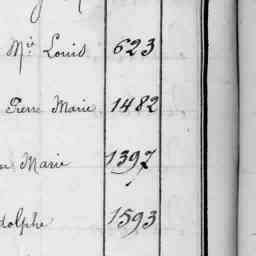 Mie Louis 623
Pierre Marie 1482
Marie 1397
dolphe 1593